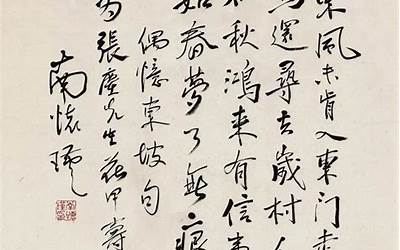 東風未肯入東門走
馬還尋去歲村人
似秋鴻來有信事
如春夢了無痕
偶憶東坡句
為張塵先生花甲壽
南懷瑾